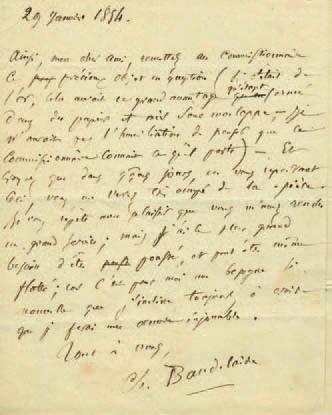 29 Janvier 1854.
Ainsi, mon cher ami, remettez au commissionnaire
ce précieux objet en question (si c'était de
l'or, cela aurait ce grand avantage
dans du papier et mis sous enveloppe, — je
n'aurais pas l'humiliation de penser que ce
commissionnaire connaît ce qu'il porte) — Et
croyez que dans quelques jours, en vous reportant
ceci, vous me verrez occupé de la
Je vous répète non seulement que vous m'aurez rendu
un grand service, mais j'ai le plus grand
besoin d'être poussé, et peut-être même
flatté; car c'est pour moi une besogne si
nouvelle que j'incline toujours à croire
que je ferai une œuvre
Tout à vous,
Ch. Baudelaire